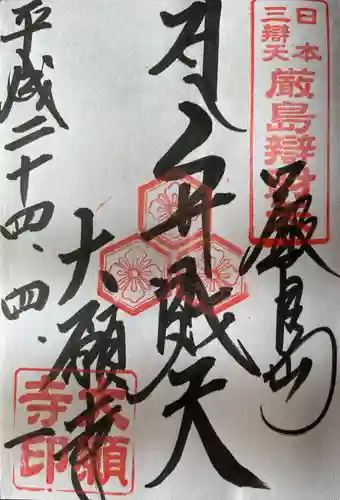 日本
三辯天
厳島辯財
厳島山
弁財天
大願寺
平成二十四、四、一
大願
寺印